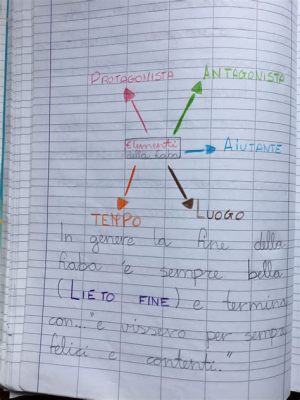 PROTAGONISTA
ANTAGONISTA
Elementi
della fiaba
AIUTANTE
TEMPO
LUOGO
In genere la fine della
fiaba è sempre bella
(LIETO FINE) e termina
con..."e vissero per sempre
felici e contenti."